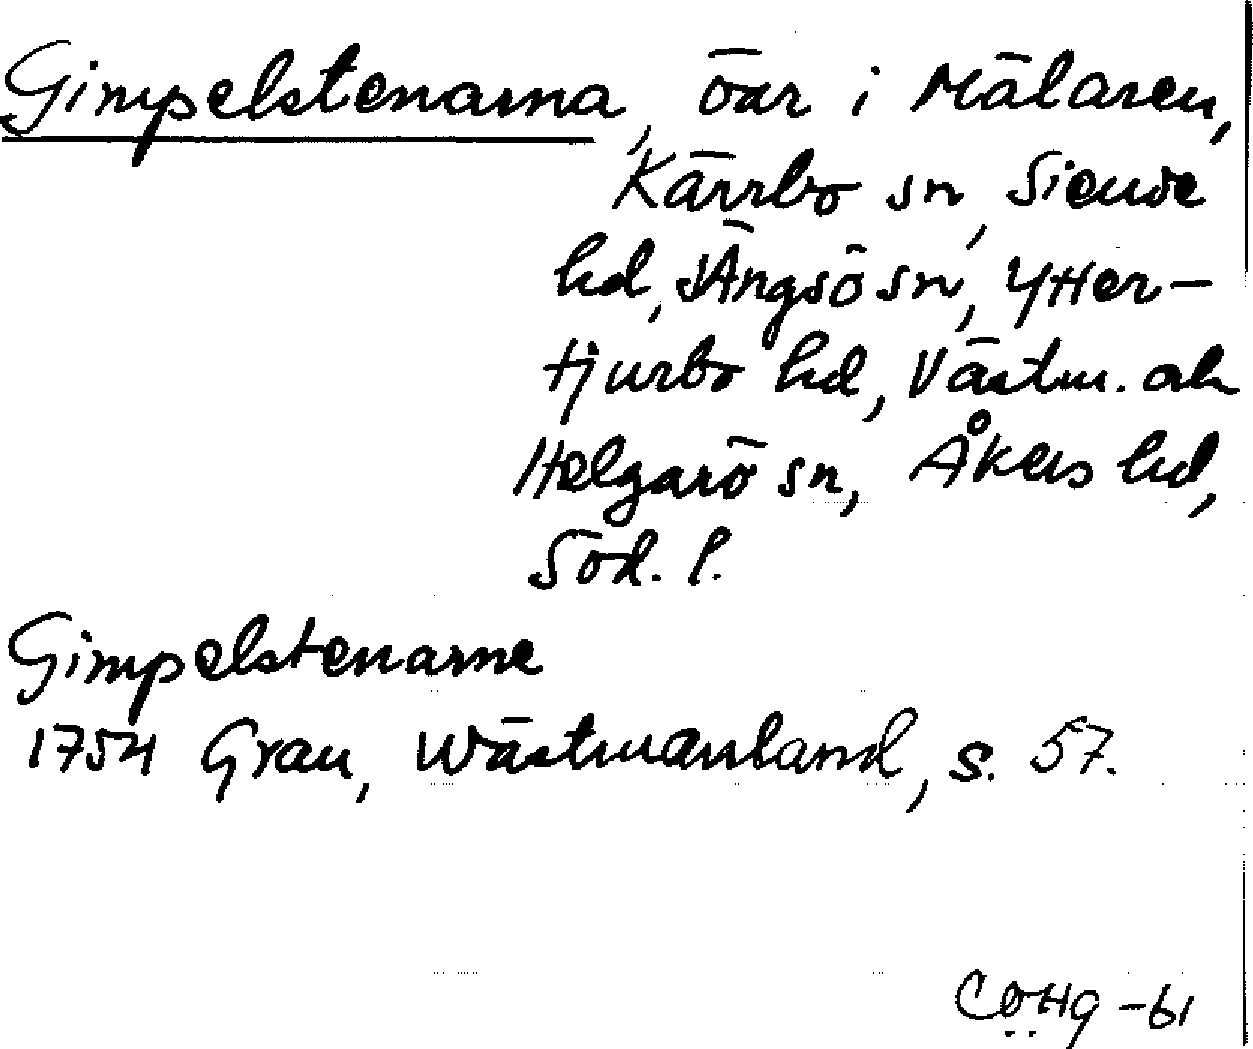 Gimpelstenarna, öar i Mälaren,
Kärrbo sn, Siende
hd, Ängsö sn, Ytter-
tjurbo hd, Västm. och
Helgarö sn, Åkers hd,
Söd. l.
Gimpelstenarne
1754 Grau, Wästmanland, s. 57.
-61